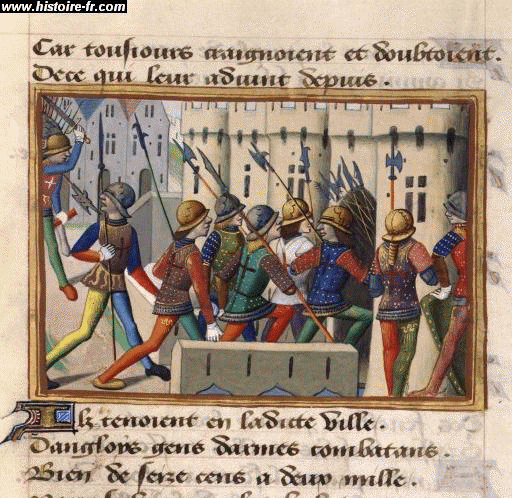 www.histoire-fr.com
Car tousiours craignoient et doubtoient.
De ce qui leur advint depuis.
Ilz tenoient en ladicte ville.
Danglois gens darmes combatans.
Bien de seize cens a deux mille.